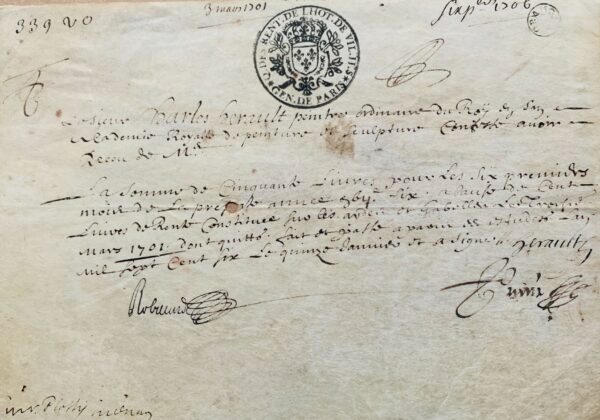 339 vo
3 mars 1701
1706
Q. DE RENT. DE L'HOT. DE VIL.
GEN. DE PARIS
Le Sieur Charles herault peintre ordinaire du Roy en Son
Academie Royalle de peinture et Sculpture Confesse avoir
Receu de Mr
La Somme de Cinquante Livres pour les Six premiers
mois de La presente année Six a cause de Cent
Livres de Rente Constituée Sur les aydes et Gabelles Le
Mars 1701 dont quitte fait et passé a paris es estudes
Mil Sept Cent Six Le quinze Janvier et a Signé herault
Robillard